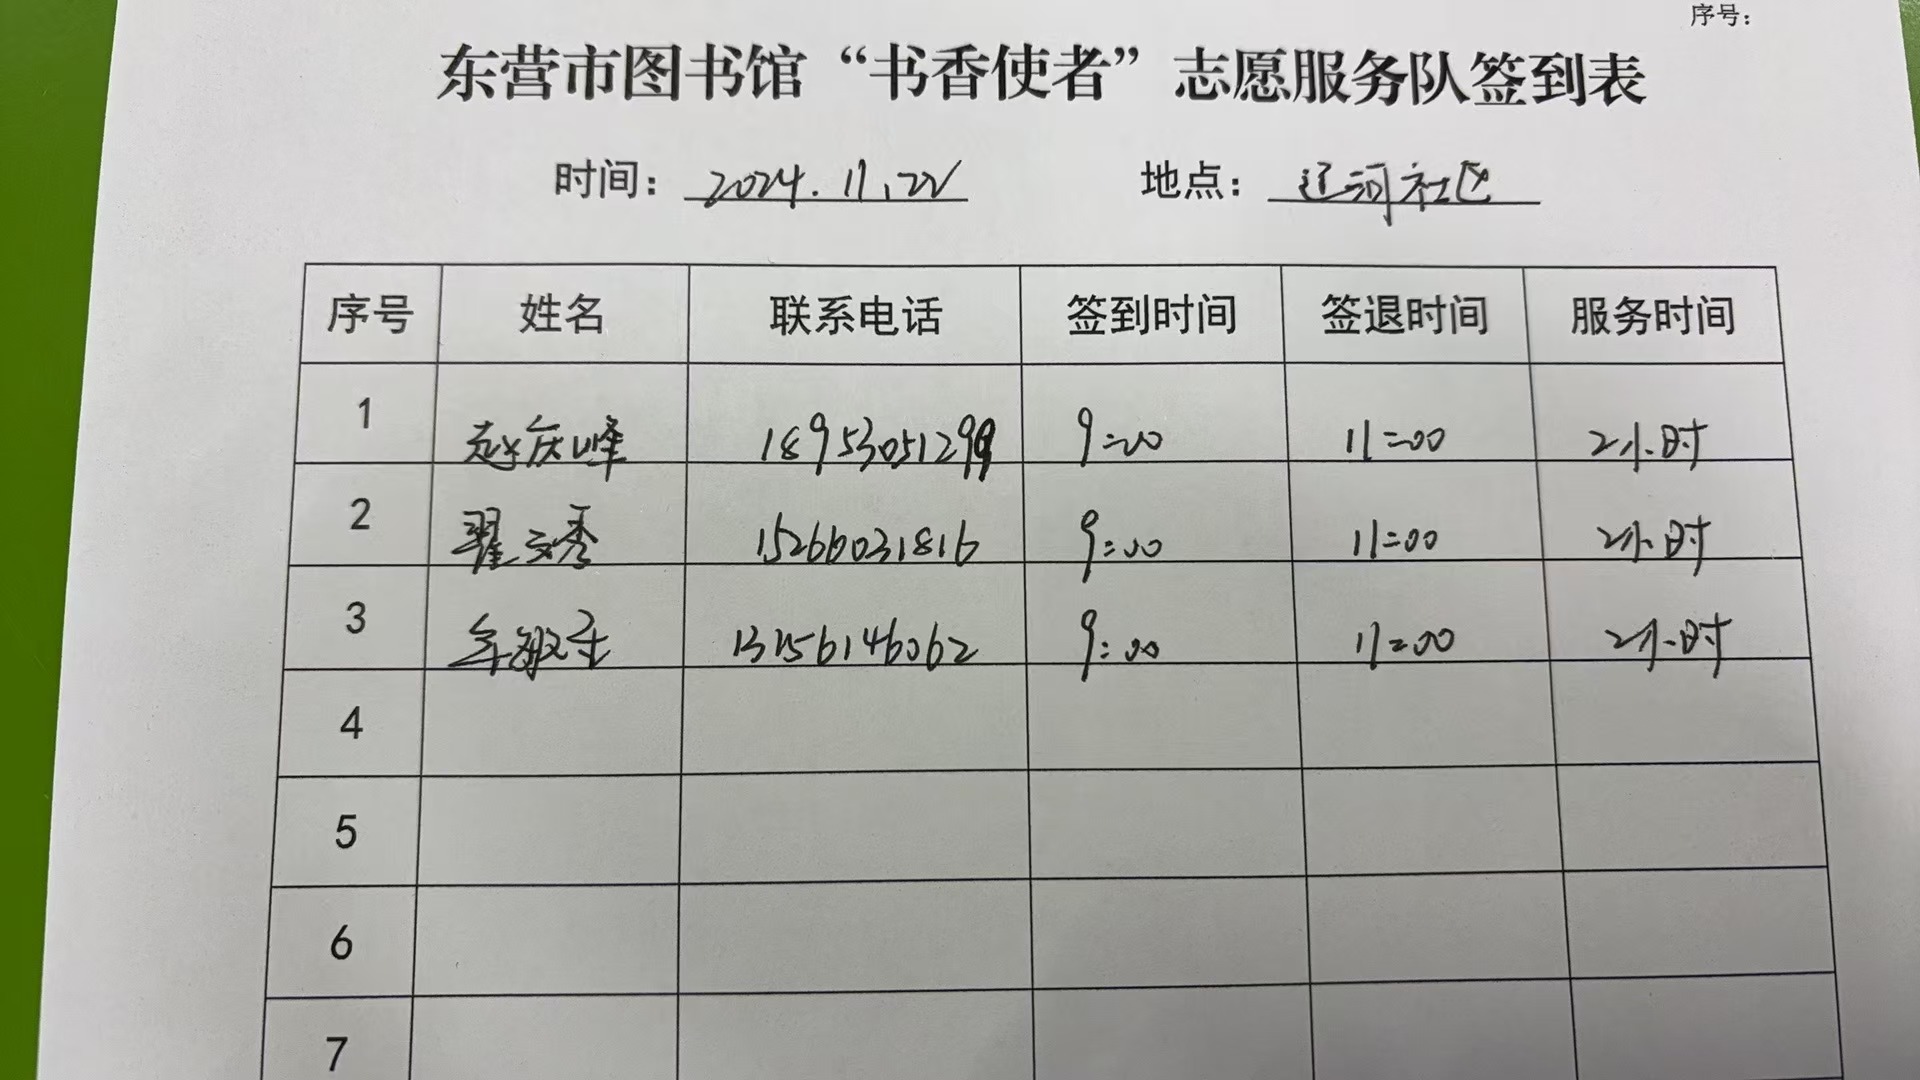 序号：
东营市图书馆“书香使者”志愿服务队签到表
时间： 2024.11.22 地点： 辽河社区
序号 姓名 联系电话 签到时间 签退时间 服务时间
1 赵庆峰 18953051299 9:00 11:00 2小时
2 翟文秀 15266031816 9:00 11:00 2小时
3 13156146062 9:00 11:00 2小时
4
5
6
7